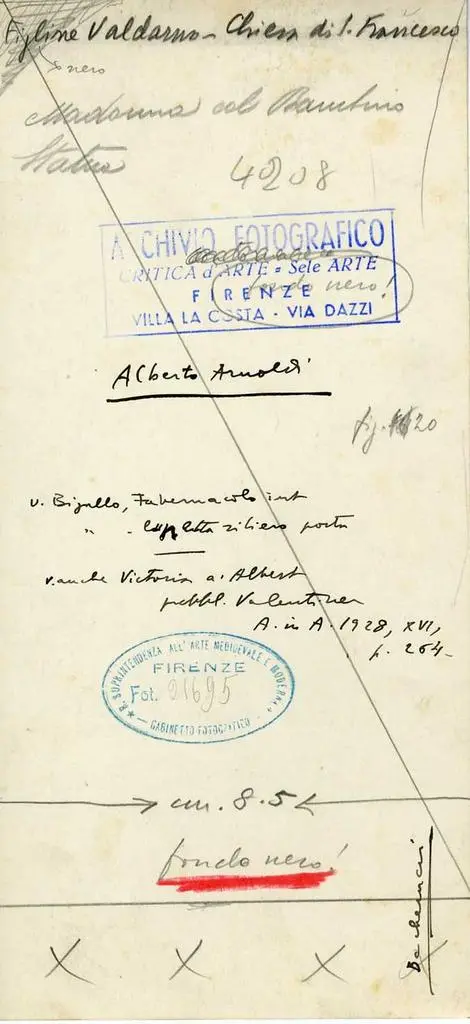 Figline Valdarno - Chiesa di S. Francesco
nero
Madonna col Bambino
Statua
4208
ARCHIVIO FOTOGRAFICO
CRITICA d'ARTE = Sele ARTE
fondo nero!
FIRENZE
VILLA LA COSTA - VIA DAZZI
Alberto Arnoldi
fig. 120
v. Bigallo, Tabernacolo int
" - lunetta porta
v. anche Victoria a. Albert
pubbl. Valentiner
A. in A. 1928, XVI,
p. 264-
R. SOPRINTENDENZA ALL'ARTE MEDIOEVALE E MODERNA
FIRENZE
Fot. 01695
GABINETTO FOTOGRAFICO
cm. 8.5
fondo nero!
X X X X